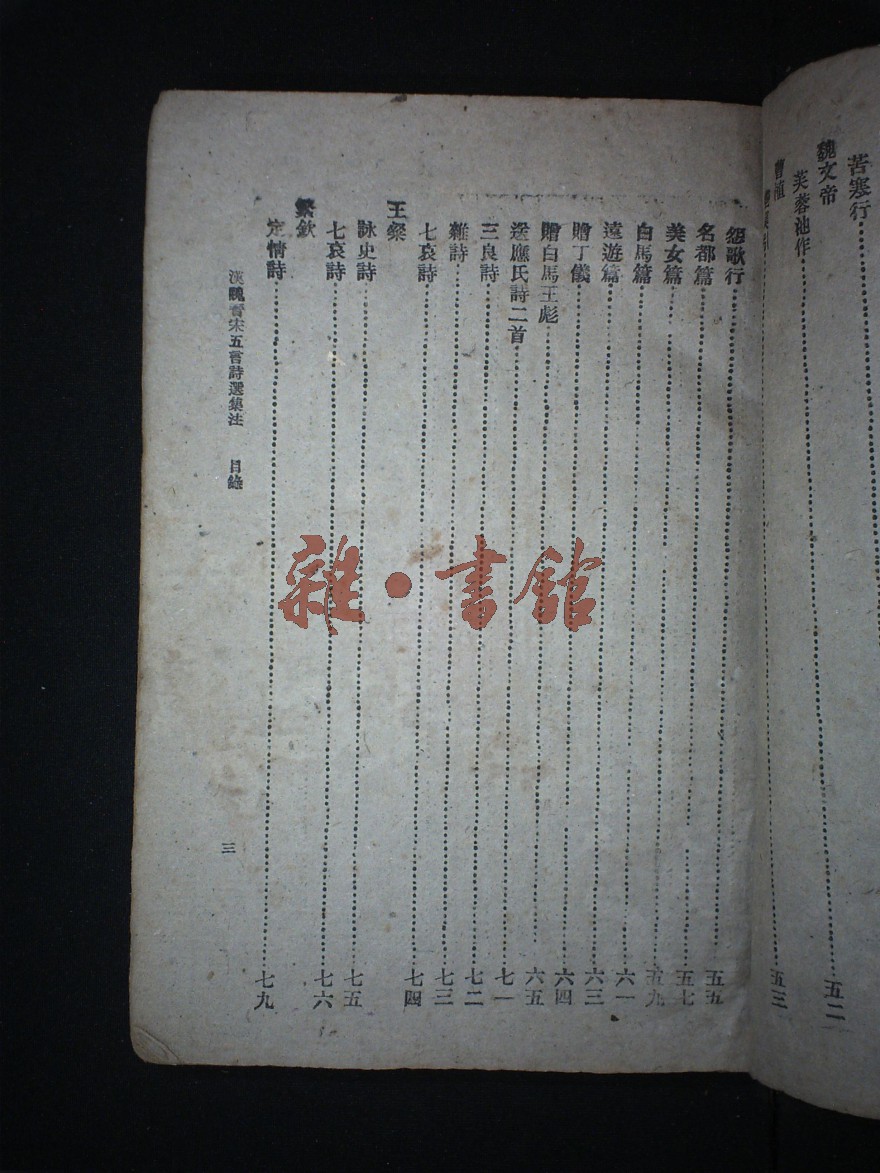 苦寒行
魏文帝
芙蓉池作……五二
曹植
……五三
怨歌行……五五
名都篇……五七
美女篇……五九
白馬篇……六一
遠遊篇……六三
贈丁儀……六四
贈白馬王彪……六五
送應氏詩二首……七一
三良詩……七二
雜詩……七三
七哀詩……七四
王粲
詠史詩……七五
七哀詩……七六
繁欽
定情詩……七九
漢魏晉宋五言詩選集注 目錄 三
雜·書館